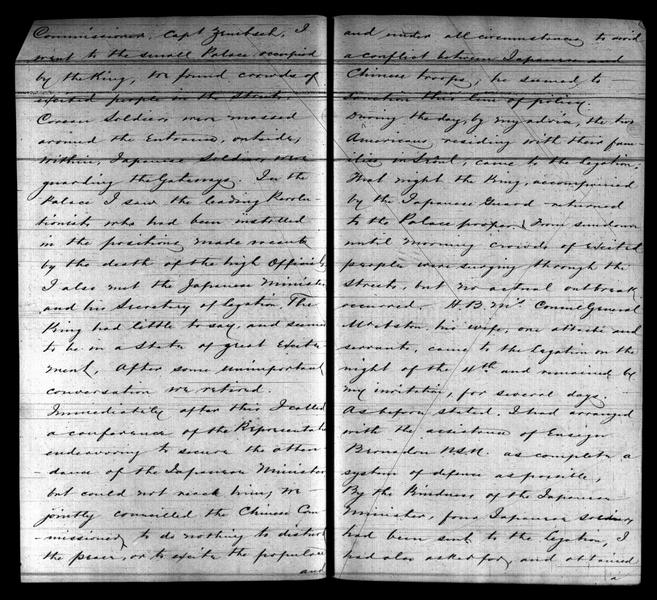 Commissioner, Capt Zembsch, I
went to the small Palace occupied
by the King, We found crowds of
excited people in the streets
Corean Soldiers were massed
around the Entrance, outside,
within, Japanese Soldiers were
guarding the Gateways. In the
Palace I saw the leading Revolu-
tionists who had been installed
in the positions made vacant
by the death of the high Officials,
I also met the Japanese Minister
and his Secretary of Legation The
King had little to say, and seemed
to be in a state of great Excite-
ment. After some unimportant
conversation we retired.
Immediately after this I called
a conference of the Representatives
endeavoring to secure the atten-
dance of the Japanese Minister
but could not reach him, We
jointly councilled the Chinese Com-
missioner, to do nothing to disturb
the peace, or to excite the populace
and
and under all circumstances, to avoid
a conflict between Japanese and
Chinese troops, he seemed to
sanction this line of policy.
During the day, by my advice, the two
Americans residing with their fam-
ilies in Seoul, came to the Legation,
That night the King, accompanied
by the Japanese Guard returned
to the Palace proper. From sundown
until morning crowds of Excited
people were surging through the
Streets, but no actual outbreak
occurred. H.B.M's Consul General
his wife, one attache and
servants, came to the Legation on the
night of the 4th and remained by
my invitation, for several days.
As before stated, I had arranged
with the assistance of Ensign
Bernadou USN. as complete a
system of defense as possible,
By the Kindness of the Japanese
Minister, four Japanese soldiers
had been sent to the Legation, I
had also asked for, and obtained
a